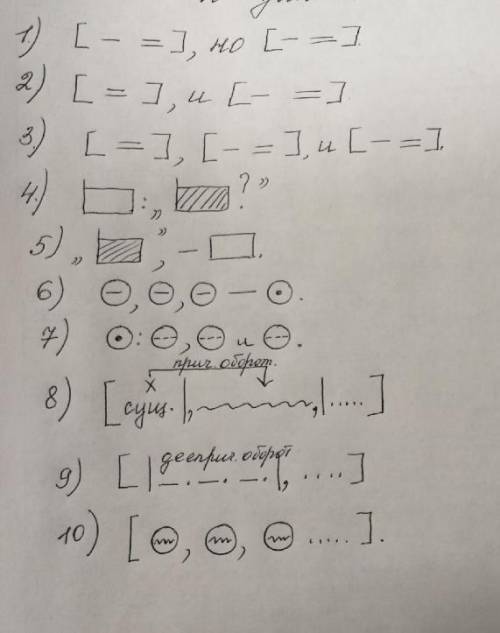 1.) [ – = ], но [ – = ].
2) [ = ], и [ – = ]
3.) [ = ], [ – = ], и [ – = ].
4.) : „ ? ”
5) „ ”, – .
6) ⊖, ⊖, ⊖ — ⊙.
7) ⊙ : ⊖, ⊖ и ⊖.
прич. оборот.
8) [ сущ. |, ~~~~, | ..... ]
9) [ | дееприч. оборот |, .... ]
10) [ , , ..... ].